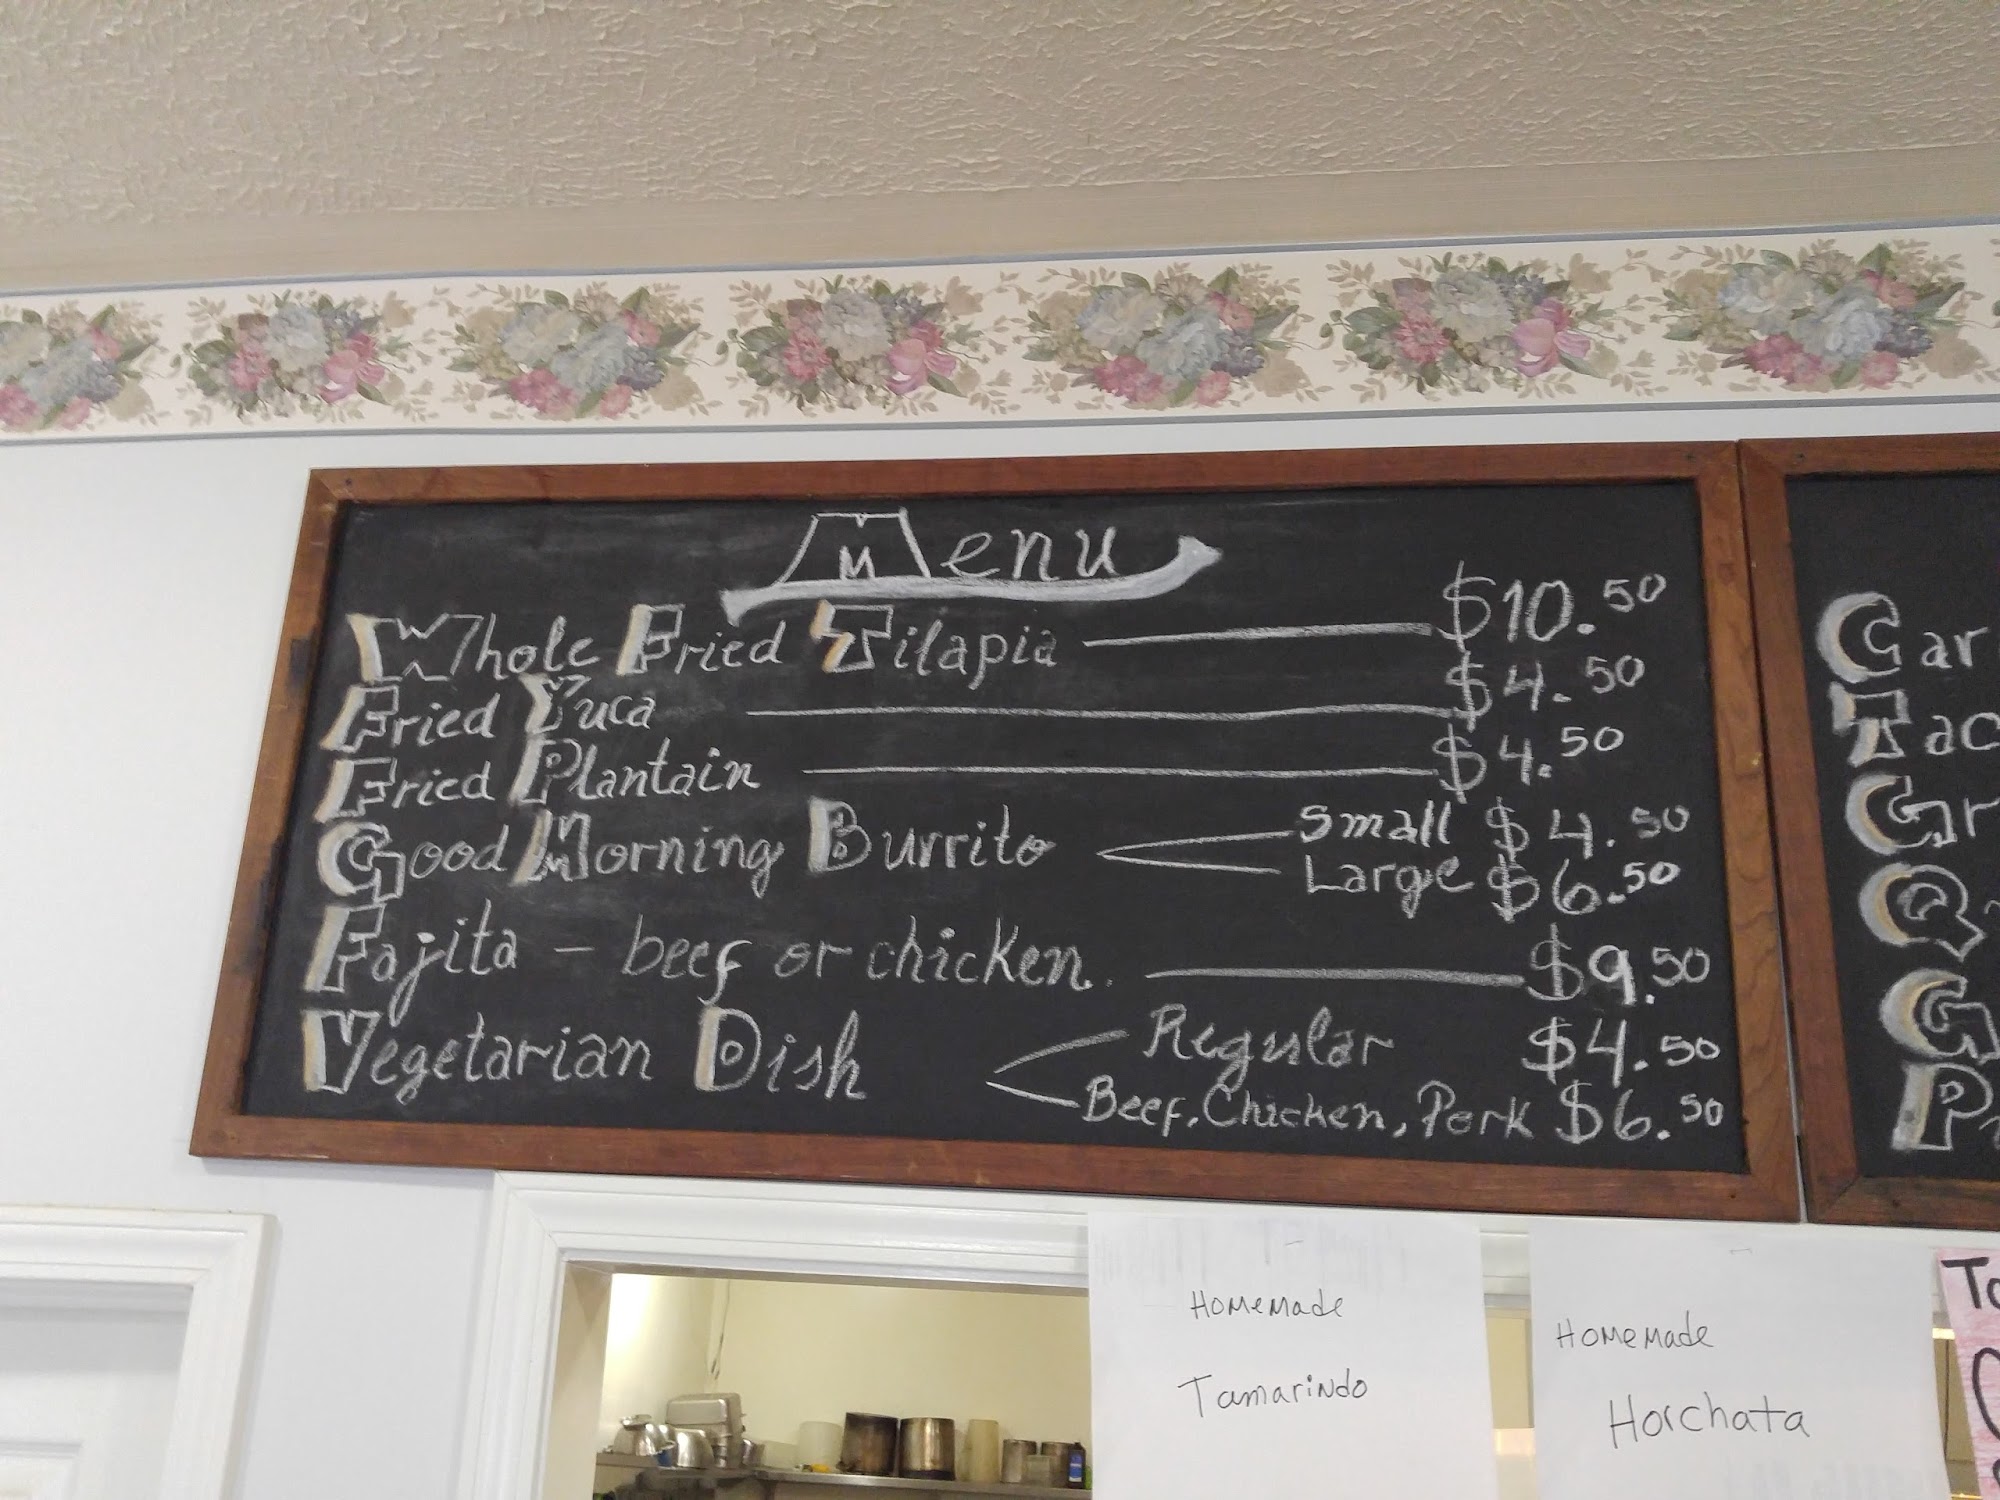 Menu
Whole Fried Tilapia $10.50
Fried Yuca $4.50
Fried Plantain $4.50
Good Morning Burrito Small $4.50
Large $6.50
Fajita - beef or chicken. $9.50
Vegetarian Dish Regular $4.50
Beef, Chicken, Pork $6.50
Homemade
Tamarindo
Homemade
Horchata